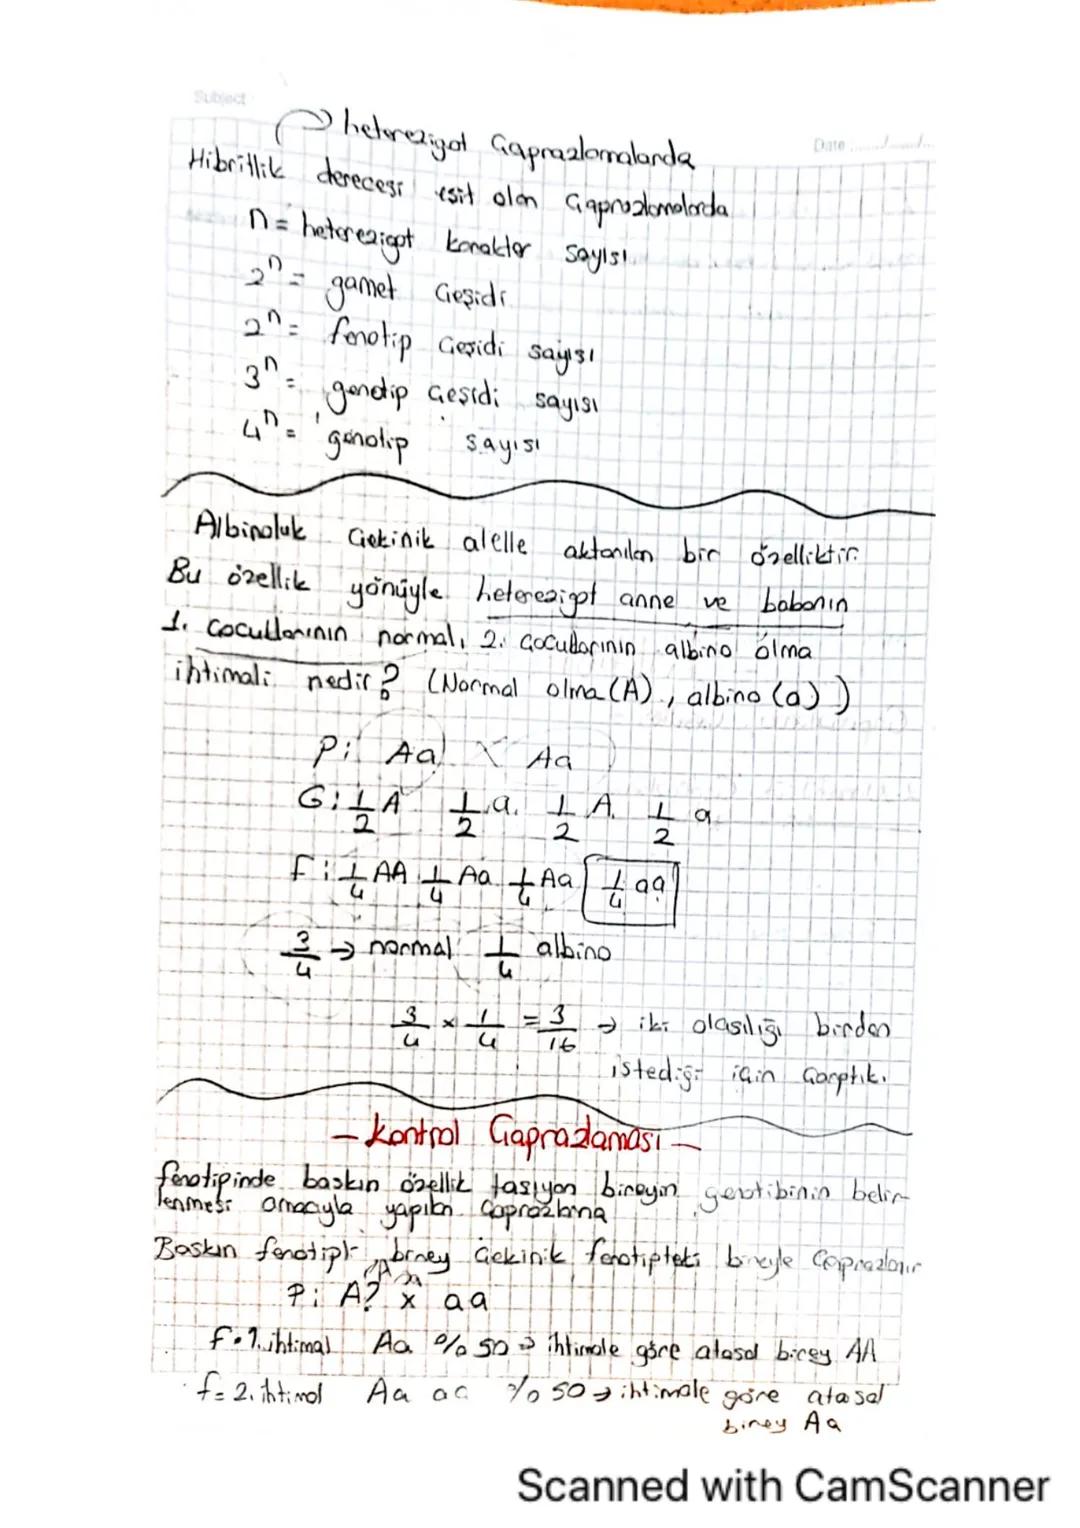 Subject
Date ....../....../......
heterezigot Çaprazlamalarda
Hibritlik derecesi eşit olan Çaprazlamalarda
n = heterezigot karakter sayısı
2ⁿ = gamet Çeşidi
2ⁿ = fenotip Çeşidi sayısı
3ⁿ = genotip Çeşidi sayısı
4ⁿ = genotip sayısı
Albinoluk Çekinik alelle aktarılan bir özelliktir.
Bu özellik yönüyle heterezigot anne ve babanın
1. çocuklarının normal, 2. çocuklarının albino olma
ihtimali nedir? (Normal olma (A), albino (a))
P: Aa X Aa
G: 1/2 A 1/2 a 1/2 A 1/2 a
F: 1/4 AA 1/4 Aa 1/4 Aa 1/4 aa
3/4 → normal 1/4 albino
3/4 x 1/4 = 3/16 → iki olasılığı birden
istediği için Çarptık.
- Kontrol Çaprazlaması -
fenotipinde baskın özellik taşıyan bireyin genotibinin belir-
lenmesi amacıyla yapılan Çaprazlama
Baskın fenotipli birey Çekinik fenotipteki bireyle Çaprazlanır
P: A? x aa
F: 1. ihtimal Aa %50 → ihtimale göre atasal birey AA
F= 2. ihtimal Aa aa %50 → ihtimale göre atasal
birey Aa
Scanned with CamScanner